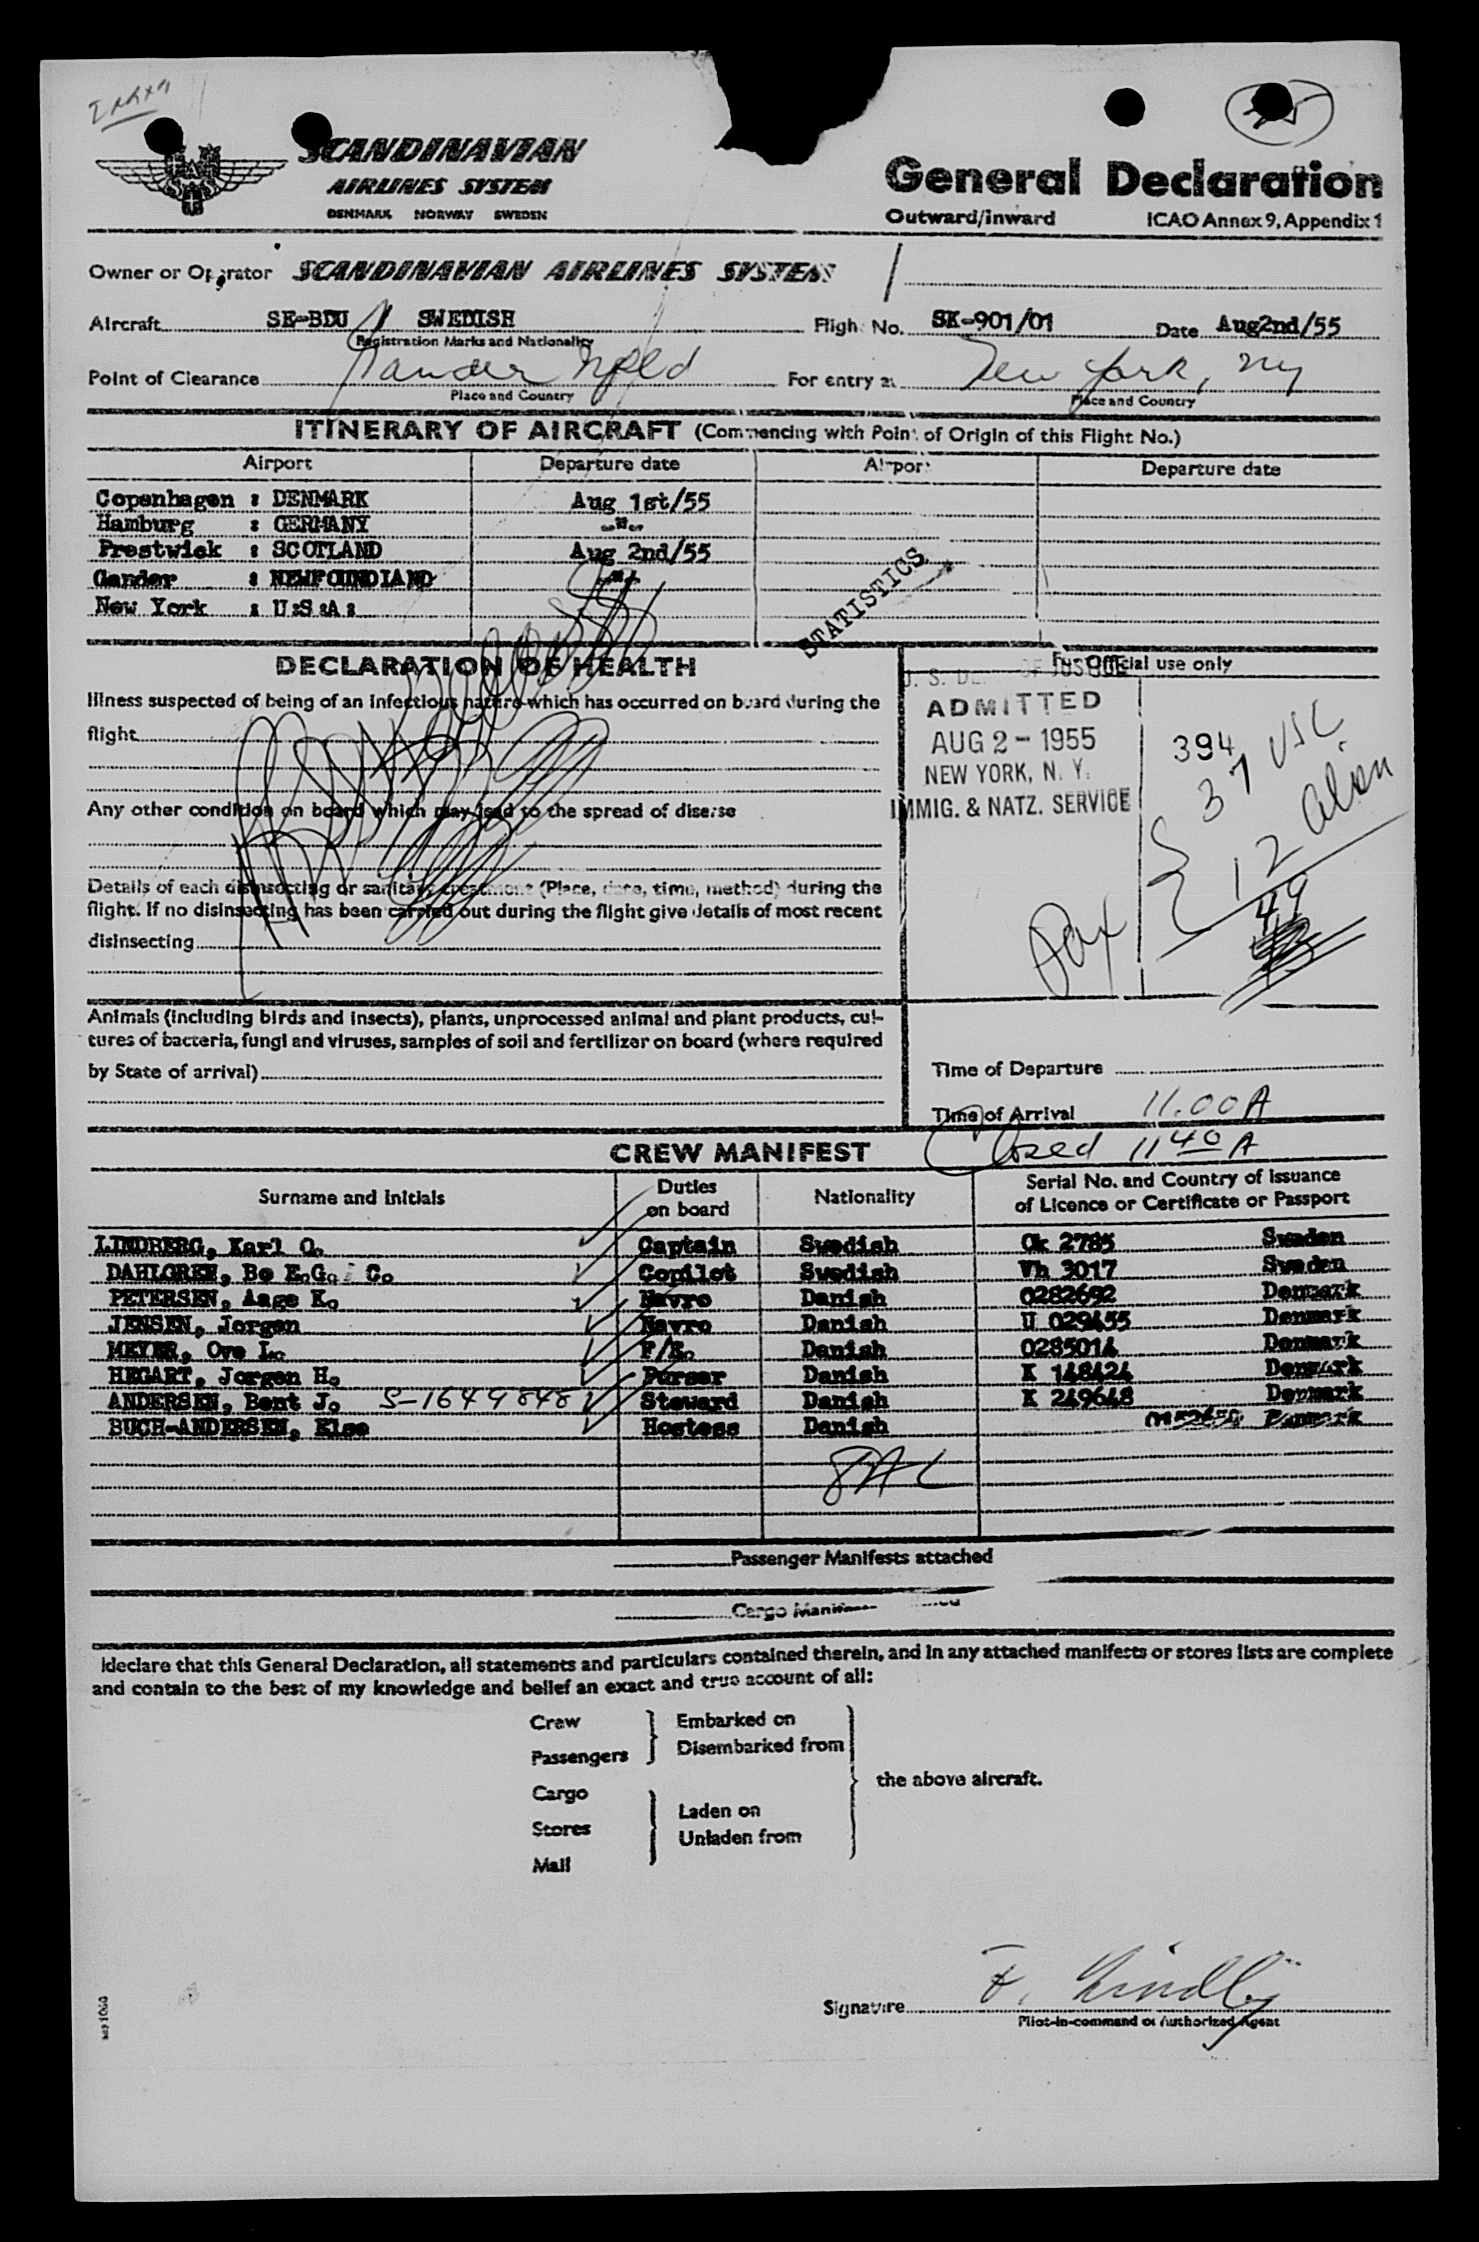 Extra
SCANDINAVIAN
AIRLINES SYSTEM
DENMARK NORWAY SWEDEN
General Declaration
Outward/Inward ICAO Annex 9, Appendix 1
Owner or Operator SCANDINAVIAN AIRLINES SYSTEM
Aircraft SE-BDU SWEDISH Flight No. SK-901/01 Date Aug2nd/55
Registration Marks and Nationality
Point of Clearance Gander Nfld For entry at New York, NY
Place and Country Place and Country
ITINERARY OF AIRCRAFT (Commencing with Point of Origin of this Flight No.)
Airport Departure date Airport Departure date
Copenhagen : DENMARK Aug 1st/55
Hamburg : GERMANY -"-
Prestwick : SCOTLAND Aug 2nd/55
Gander : NEWFOUNDLAND -"-
New York : U:S:A:
STATISTICS
DECLARATION OF HEALTH
For Official use only
Illness suspected of being of an infectious nature which has occurred on board during the
flight
Any other condition on board which may lead to the spread of disease
Details of each disinsecting or sanitary treatment (Place, date, time, method) during the
flight. If no disinsecting has been carried out during the flight give details of most recent
disinsecting
U. S. DEPT. OF JUSTICE
ADMITTED
AUG 2 - 1955
NEW YORK, N. Y.
IMMIG. & NATZ. SERVICE
394
37 USC
12 alien
49
Pax
Animals (including birds and insects), plants, unprocessed animal and plant products, cul-
tures of bacteria, fungi and viruses, samples of soil and fertilizer on board (where required
by State of arrival)
Time of Departure
Time of Arrival 11.00 A
Closed 11 40 A
CREW MANIFEST
Surname and Initials Duties on board Nationality Serial No. and Country of Issuance of Licence or Certificate or Passport
LINDBERG, Karl O. Captain Swedish Ck 2785 Sweden
DAHLGREN, Bo E.G. C. Copilot Swedish Vh 3017 Sweden
PETERSEN, Aage K. Navro Danish 0282692 Denmark
JENSEN, Jorgen Navro Danish U 029455 Denmark
MEYER, Ove L. F/E. Danish 0285014 Denmark
HEGART, Jorgen H. Purser Danish K 148424 Denmark
ANDERSEN, Bent J. S-1649848 Steward Danish K 249648 Denmark
BUCH-ANDERSEN, Else Hostess Danish Denmark
Passenger Manifests attached
Cargo Manifests attached
I declare that this General Declaration, all statements and particulars contained therein, and in any attached manifests or stores lists are complete
and contain to the best of my knowledge and belief an exact and true account of all:
Crew Embarked on
Passengers Disembarked from
the above aircraft.
Cargo Laden on
Stores Unladen from
Mail
Signature F. Lindby
Pilot-in-command or Authorized Agent